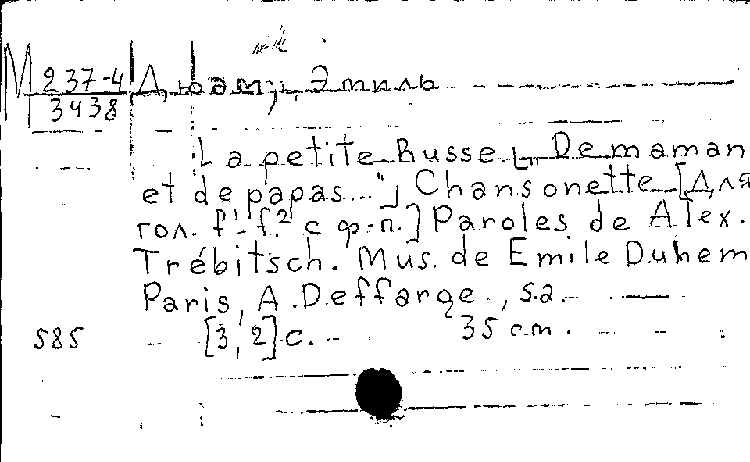 М 237-4 Дюам, Эмиль
3438
La petite Russe ["De maman
et de papas..."] Chansonette [Для
гол. f'-f.² с ф-п.] Paroles de Alex.
Trébitsch. Mus. de Emile Duhem
Paris, A. Deffarge., s.a.
585 [3, 2] с. 35 cm.